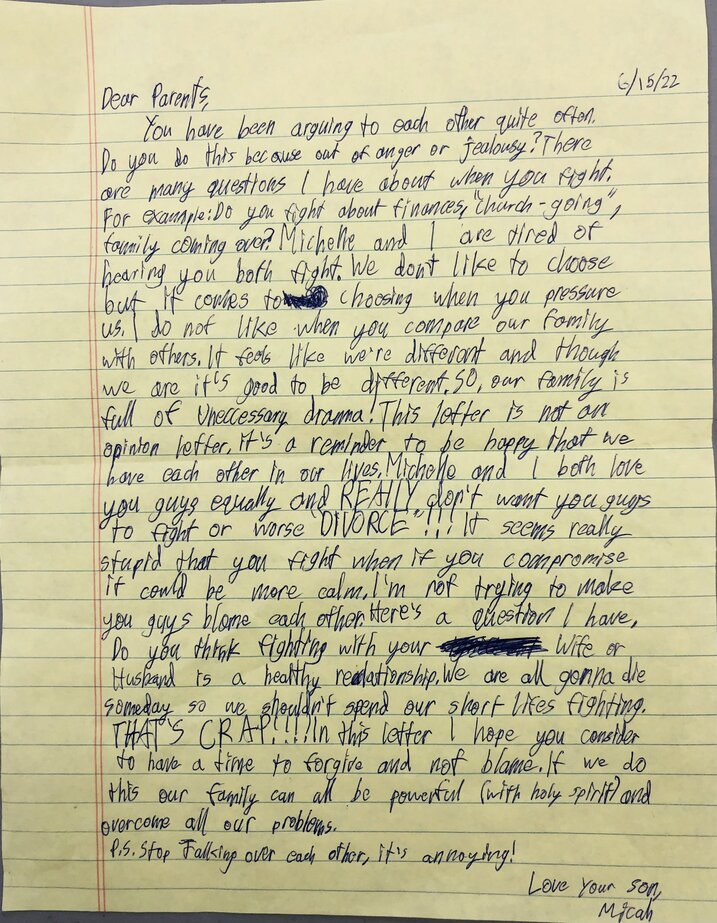 6/15/22
Dear Parents,
You have been arguing to each other quite often.
Do you do this because out of anger or jealousy? There
are many questions I have about when you fight.
For example: Do you fight about finances, "church-going",
family coming over? Michelle and I are tired of
hearing you both fight. We dont like to choose
but it comes to choosing when you pressure
us. I do not like when you compare our family
with others. It feels like we're different and though
we are it's good to be different. SO, our family is
full of Uneccessary dramma! This letter is not an
opinion letter, it's a reminder to be happy that we
have each other in our lives. Michelle and I both love
you guys equally and REALLY don't want you guys
to fight or worse "DIVORCE"!!! It seems really
stupid that you fight when if you compromise
it could be more calm. I'm not trying to make
you guys blame each other. Here's a question I have,
Do you think fighting with your Wife or
Husband is a healthy relationship. We are all gonna die
someday so we shouldn't spend our short lifes fighting.
THAT'S CRAP!!!! In this letter I hope you consider
to have a time to forgive and not blame. If we do
this our family can all be powerful (with holy spirit) and
overcome all our problems.
P.S. Stop Talking over each other, it's annoying!
Love Your son,
Micah